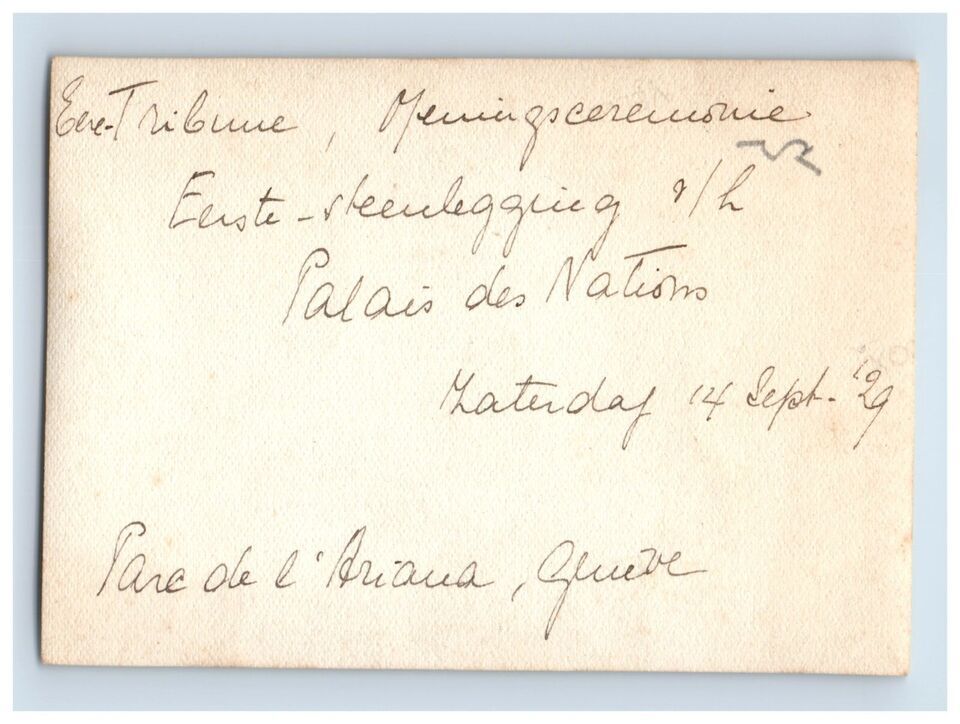 Eere-Tribune, Openingsceremonie
Eerste-steenlegging v/h
Palais des Nations
Zaterdag 14 Sept. '29
Parc de l'Ariana, Genève